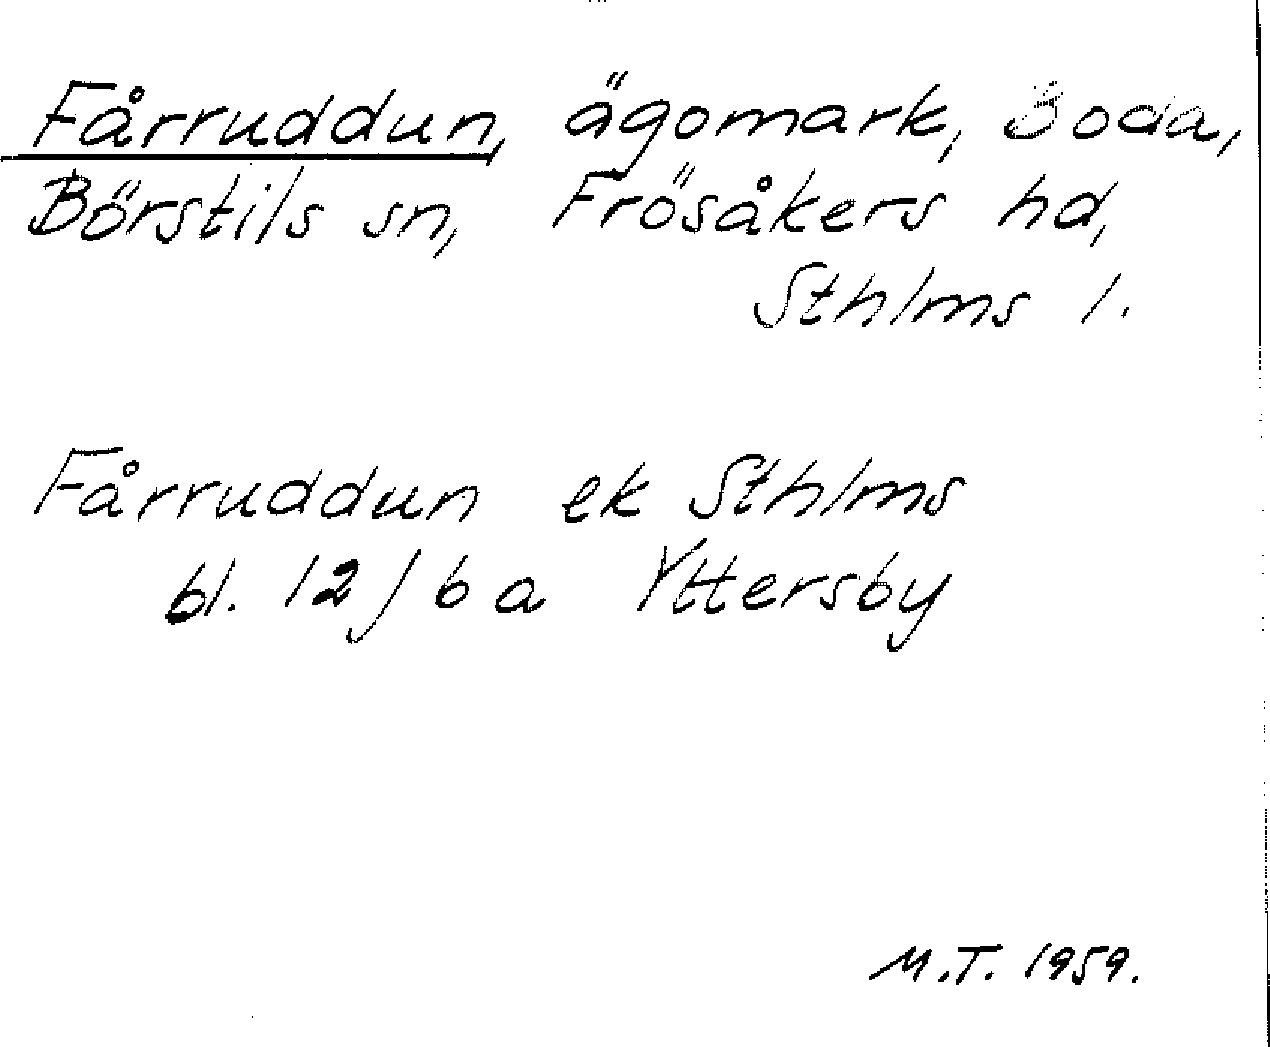 Fårruddun, ägomark, Boda,
Börstils sn, Frösåkers hd,
Sthlms l.
Fårruddun ek Sthlms
bl. 12 J 6 a Yttersby
M.T. 1959.